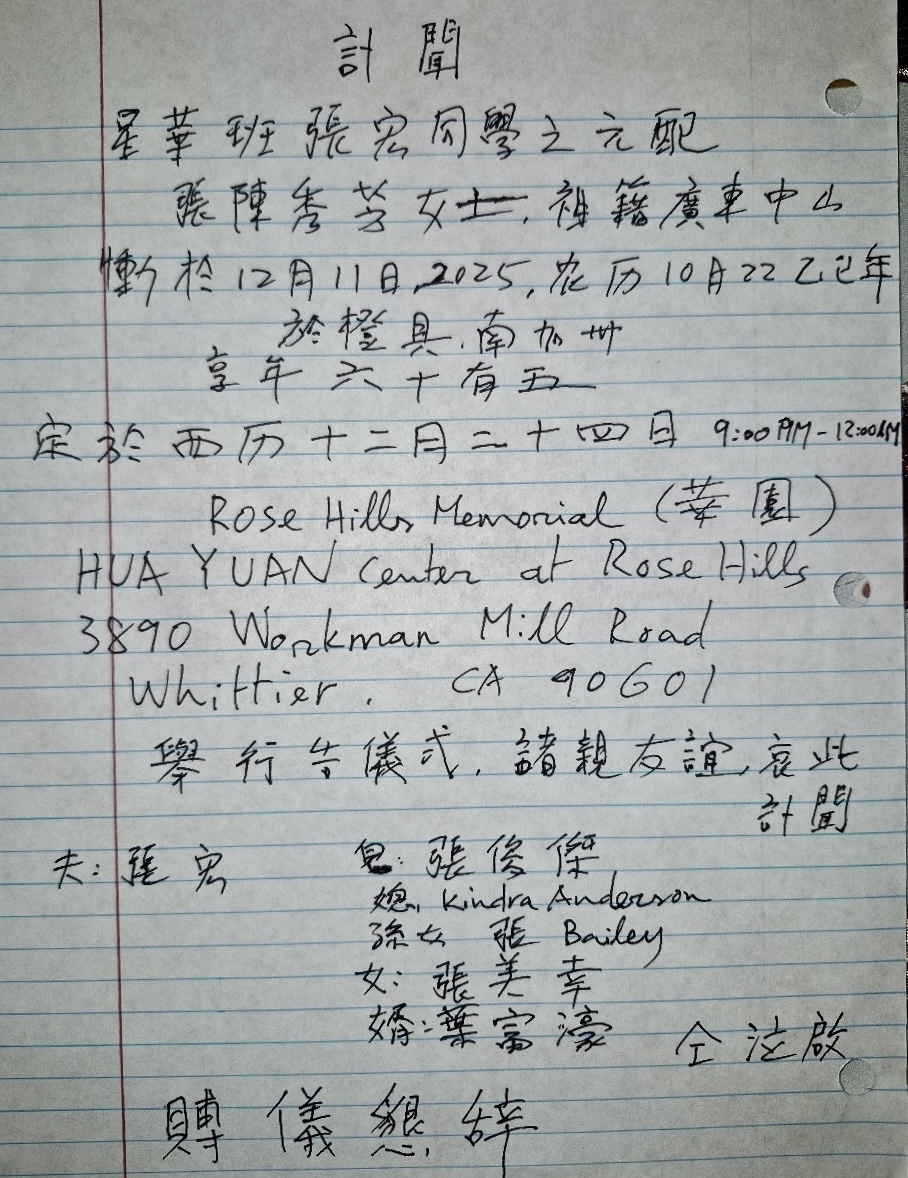 訃聞
星華班張宏同學之元配
張陳秀芳女士,祖籍廣東中山
慟於12月11日,2025,农历10月22乙巳年
於橙具,南加州
享年六十有五
定於西历十二月二十四日 9:00AM-12:00AM
Rose Hills Memorial (華園)
HUA YUAN Center at Rose Hills
3890 Workman Mill Road
Whittier. CA 90601
舉行告儀式,諸親友誼,哀此
訃聞
夫:張宏 兒:張俊傑
媳, Kindra Anderson
孫女 張 Bailey
女:張美幸
婿:葉富濠
仝泣啟
賻儀懇辞